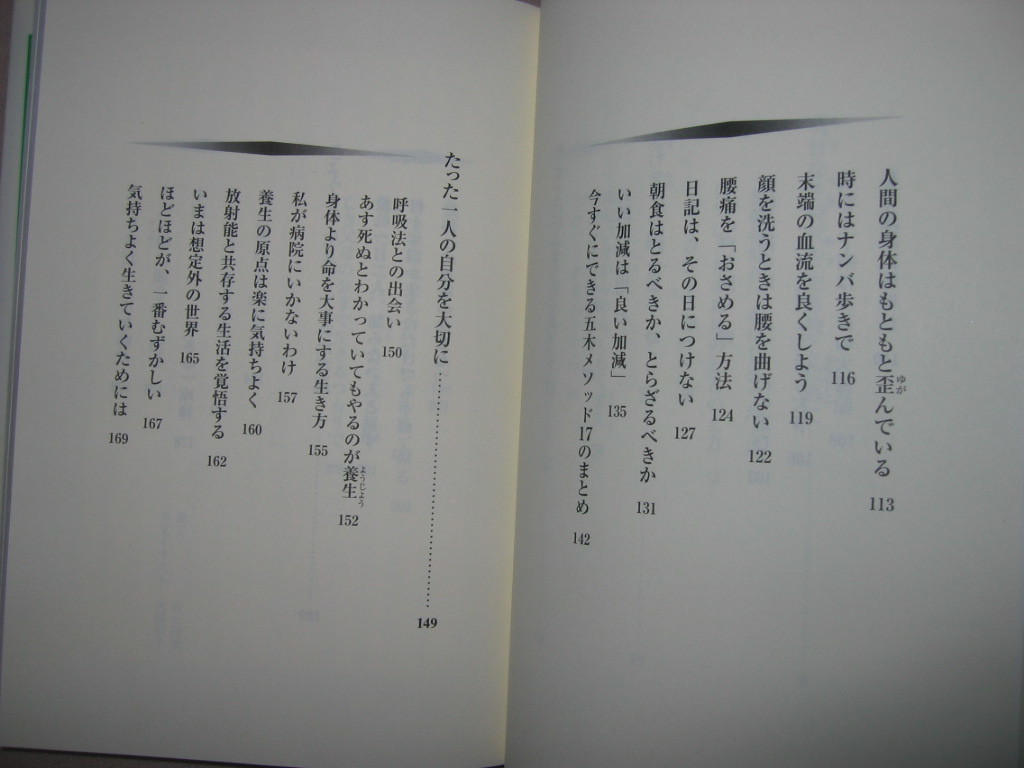 人間の身体はもともと歪んでいる 113
時にはナンバ歩きで 116
末端の血流を良くしよう 119
顔を洗うときは腰を曲げない 122
腰痛を「おさめる」方法 124
日記は、その日につけない 127
朝食はとるべきか、とらざるべきか 131
いい加減は「良い加減」 135
今すぐにできる五木メソッド17のまとめ 142
たった一人の自分を大切に 149
呼吸法との出会い 150
あす死ぬとわかっていてもやるのが養生 152
身体より命を大事にする生き方 155
私が病院にいかないわけ 157
養生の原点は楽に気持ちよく 160
放射能と共存する生活を覚悟する 162
いまは想定外の世界 165
ほどほどが、一番むずかしい 167
気持ちよく生きていくためには 169